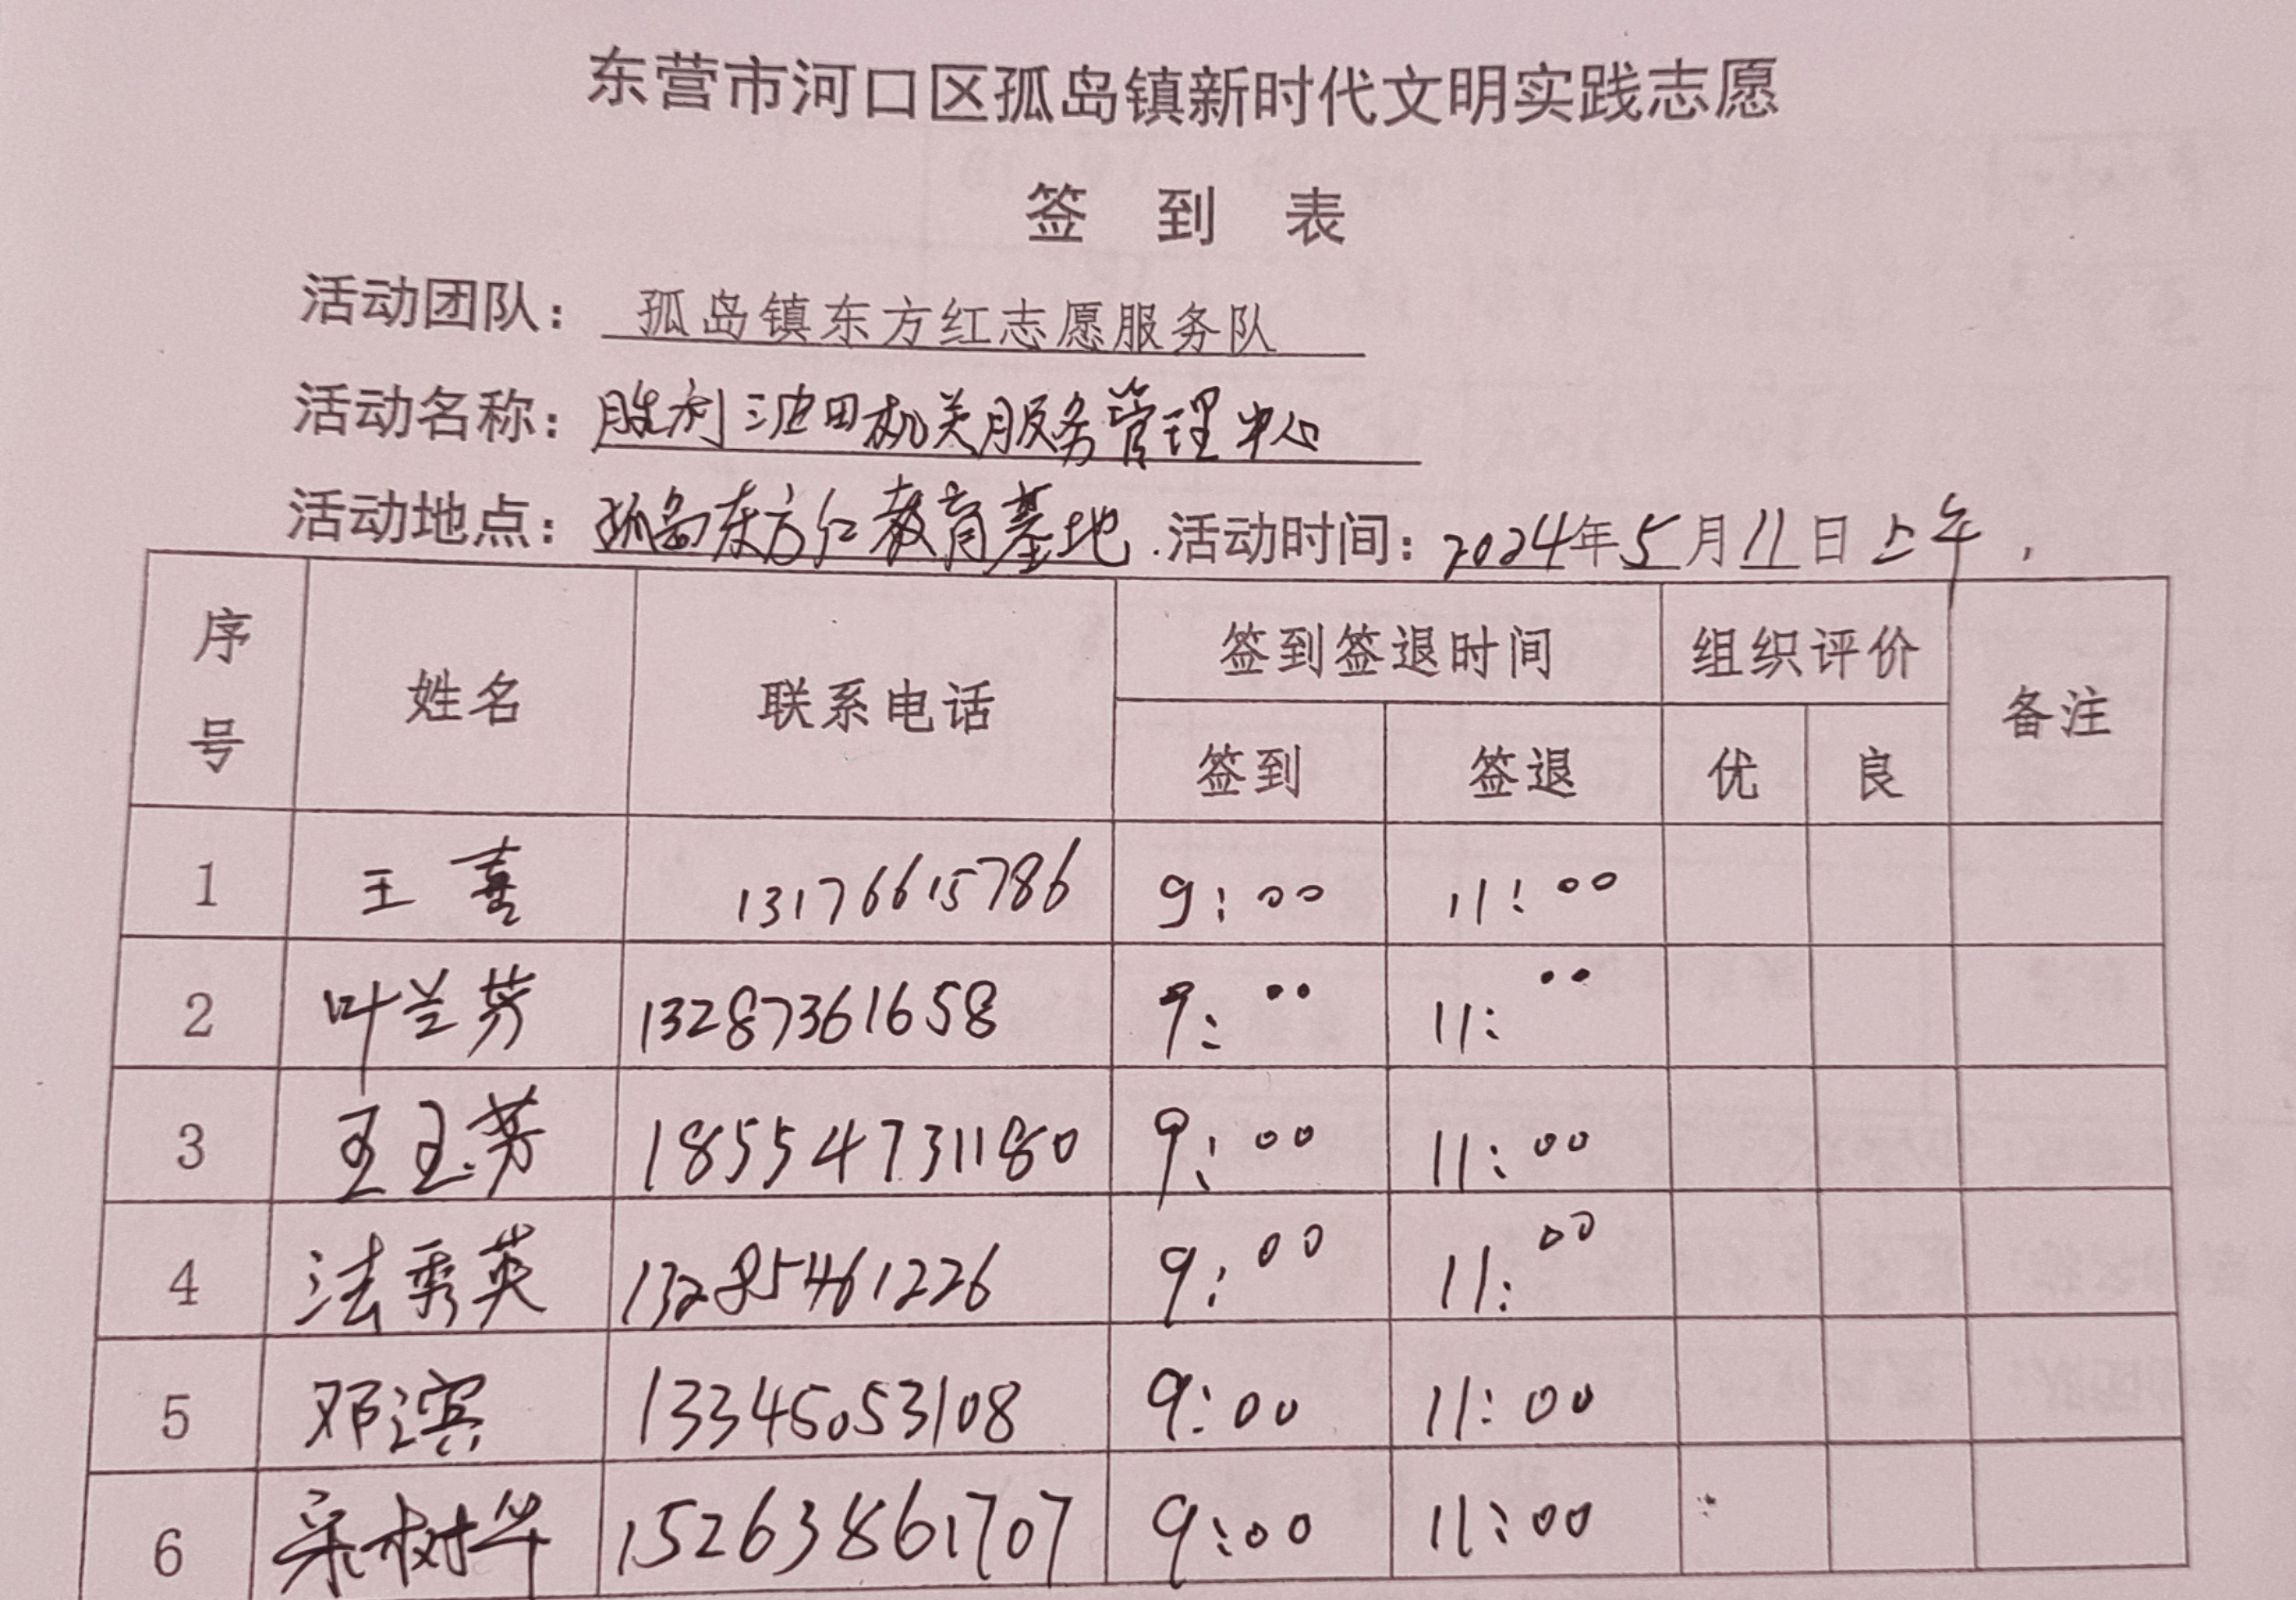 东营市河口区孤岛镇新时代文明实践志愿
签 到 表
活动团队： 孤岛镇东方红志愿服务队
活动名称：胜利油田机关服务管理中心
活动地点：孤岛东方红教育基地.活动时间：2024年5月11日上午，
序号 姓名 联系电话 签到签退时间 组织评价 备注
签到 签退 优 良
1 王喜 13176615786 9:00 11:00
2 叶兰芳 13287361658 9:00 11:00
3 王玉芳 18554731180 9:00 11:00
4 法秀英 13285461226 9:00 11:00
5 邓滨 13345053108 9:00 11:00
6 树华 15263861707 9:00 11:00